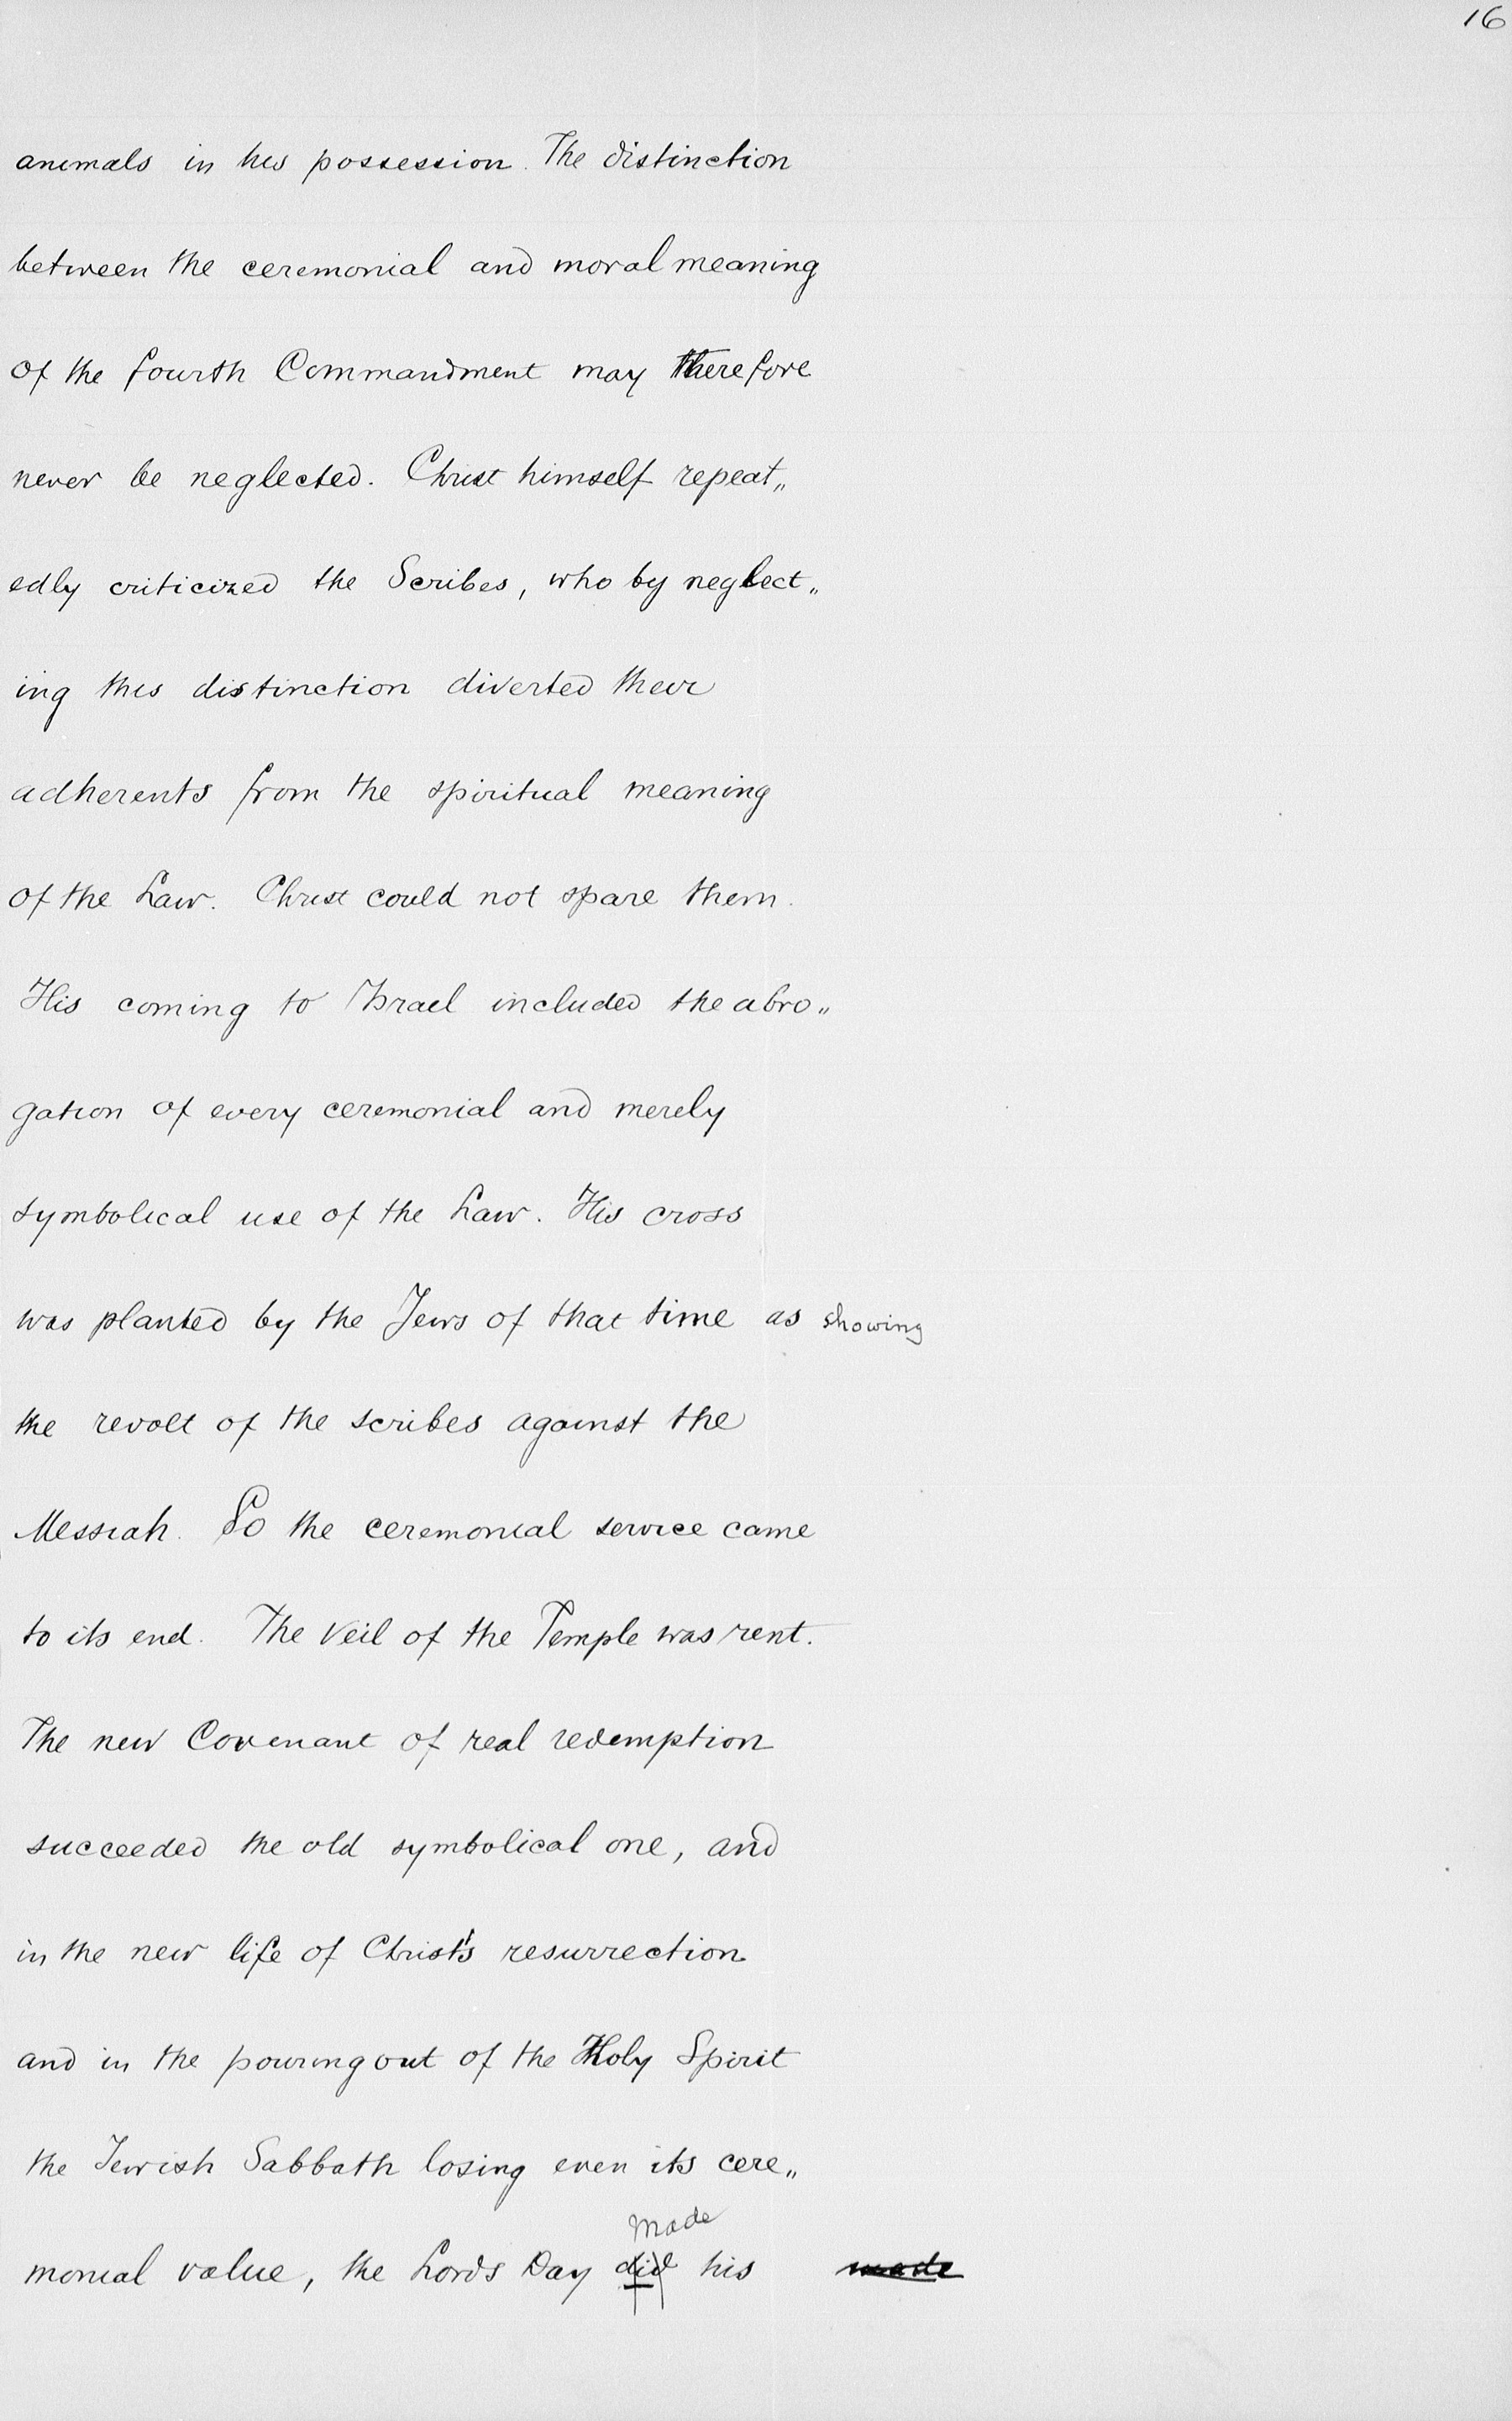 16
animals in his possession. The distinction
between the ceremonial and moral meaning
of the fourth Commandment may therefore
never be neglected. Christ himself repeat„
edly criticized the Scribes, who by neglect„
ing this distinction diverted their
adherents from the spiritual meaning
of the Law. Christ could not spare them.
His coming to Israel included the abro„
gation of every ceremonial and merely
symbolical use of the Law. His cross
was planted by the Jews of that time as showing
the revolt of the scribes against the
Messiah. So the ceremonial service came
to its end. The Veil of the Temple was rent.
The new Covenant of real redemption
succeeded the old symbolical one, and
in the new life of Christ's resurrection
and in the pouring out of the Holy Spirit
the Jewish Sabbath losing even its cere„
made
monial value, the Lords Day did his made